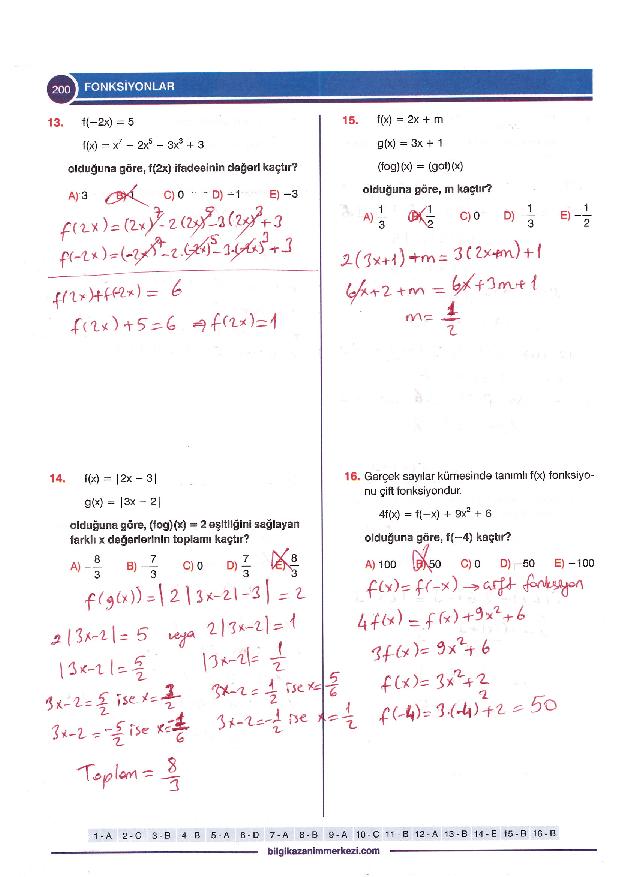 200 FONKSİYONLAR
13. f(–2x) = 5
f(x) = x⁷ – 2x⁵ – 3x³ + 3
olduğuna göre, f(2x) ifadesinin değeri kaçtır?
A) 3 B) 1 C) 0 D) –1 E) –3
f(2x) = (2x)⁷ - 2(2x)⁵ - 3(2x)³ + 3
f(-2x) = (-2x)⁷ - 2.(-2x)⁵ - 3.(-2x)³ + 3
f(2x) + f(-2x) = 6
f(2x) + 5 = 6 ⇒ f(2x) = 1
14. f(x) = |2x – 3|
g(x) = |3x – 2|
olduğuna göre, (fog)(x) = 2 eşitliğini sağlayan
farklı x değerlerinin toplamı kaçtır?
A) –8/3 B) –7/3 C) 0 D) 7/3 E) 8/3
f(g(x)) = |2|3x-2|-3| = 2
2|3x-2| = 5 veya 2|3x-2| = 1
|3x-2| = 5/2 |3x-2| = 1/2
3x-2 = 5/2 ise x = 3/2 3x-2 = 1/2 ise x = 5/6
3x-2 = -5/2 ise x = -1/6 3x-2 = -1/2 ise x = 1/2
Toplam = 8/3
15. f(x) = 2x + m
g(x) = 3x + 1
(fog)(x) = (gof)(x)
olduğuna göre, m kaçtır?
A) 1/3 B) –1/2 C) 0 D) 1/3 E) –1/2
2(3x+1)+m = 3(2x+m)+1
6x+2+m = 6x+3m+1
m = 1/2
16. Gerçek sayılar kümesinde tanımlı f(x) fonksiyo-
nu çift fonksiyondur.
4f(x) = f(–x) + 9x² + 6
olduğuna göre, f(–4) kaçtır?
A) 100 B) 50 C) 0 D) –50 E) –100
f(x) = f(-x) → çift fonksiyon
4f(x) = f(x) + 9x² + 6
3f(x) = 9x² + 6
f(x) = 3x² + 2
f(-4) = 3.(-4)² + 2 = 50
1 - A 2 - C 3 - B 4 - B 5 - A 6 - D 7 - A 8 - B 9 - A 10 - C 11 - B 12 - A 13 - B 14 - E 15 - B 16 - B
bilgikazanimmerkezi.com